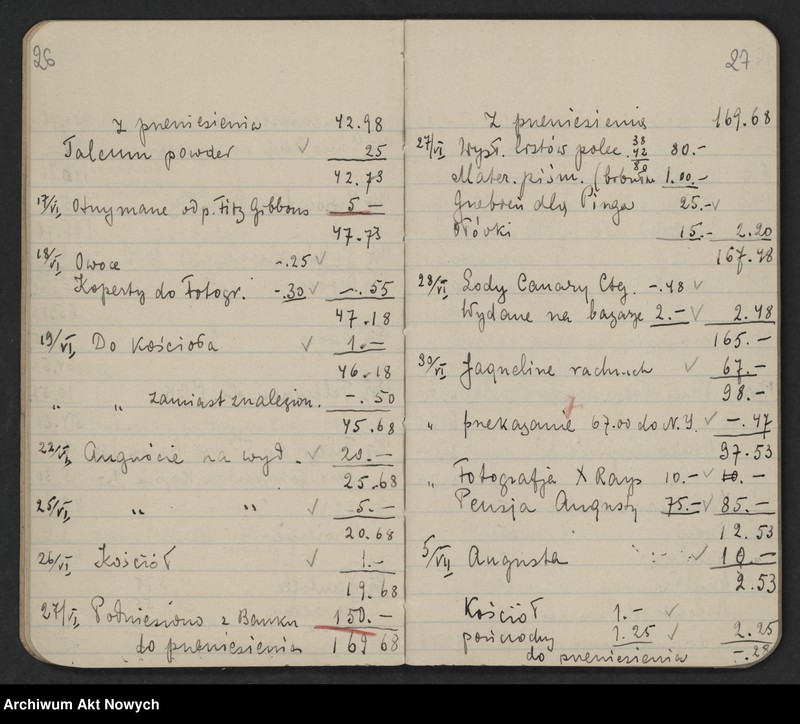 26
z pneniesienia 42.98
Talcum powder √ 25
42.73
17/VI Otrzymane od p. Fitz Gibbons 5 —
47.73
18/VI Owoce -.25 √
Koperty do Fotogr. -.30 √ —.55
47.18
19/VI Do Kościoła √ 1.—
46.18
„ „ zamiast znalezion. —.50
45.68
22/VI Auguście na wyd. √ 20.—
25.68
25/VI „ „ √ 5.—
20.68
26/VI Kościół √ 1.—
19.68
27/VI Podniesiono z Banku 150.—
do pneniesienia 169 68
27
z pneniesienia 169.68
27/VI Wysł. listów polec. 38 42 80 80.—
Mater. piśm. 1.00.—
Grzebień dla Pinga 25.— √
Ołówki 15.— 2.20
167.48
28/VI Lody Canary Ctg. -.48 √
Wydane na bazarze 2.— √ 2.48
165.—
30/VI Jaqueline rachunek √ 67.—
98.—
„ przekazanie 67.00 do N.Y. √ —.47
97.53
„ Fotografja X Rays 10.— √ 10.—
Pensja Augusty 75.— √ 85.—
12.53
5/VII Augusta √ 10.—
2.53
Kościół 1.— √
1.25 √ 2.25
do pneniesienia —.28
Archiwum Akt Nowych